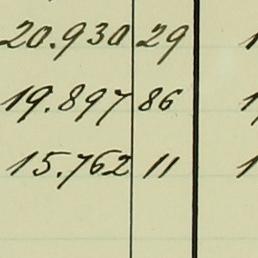 20.930 29 1
19.897 86 1
15.762 11 1